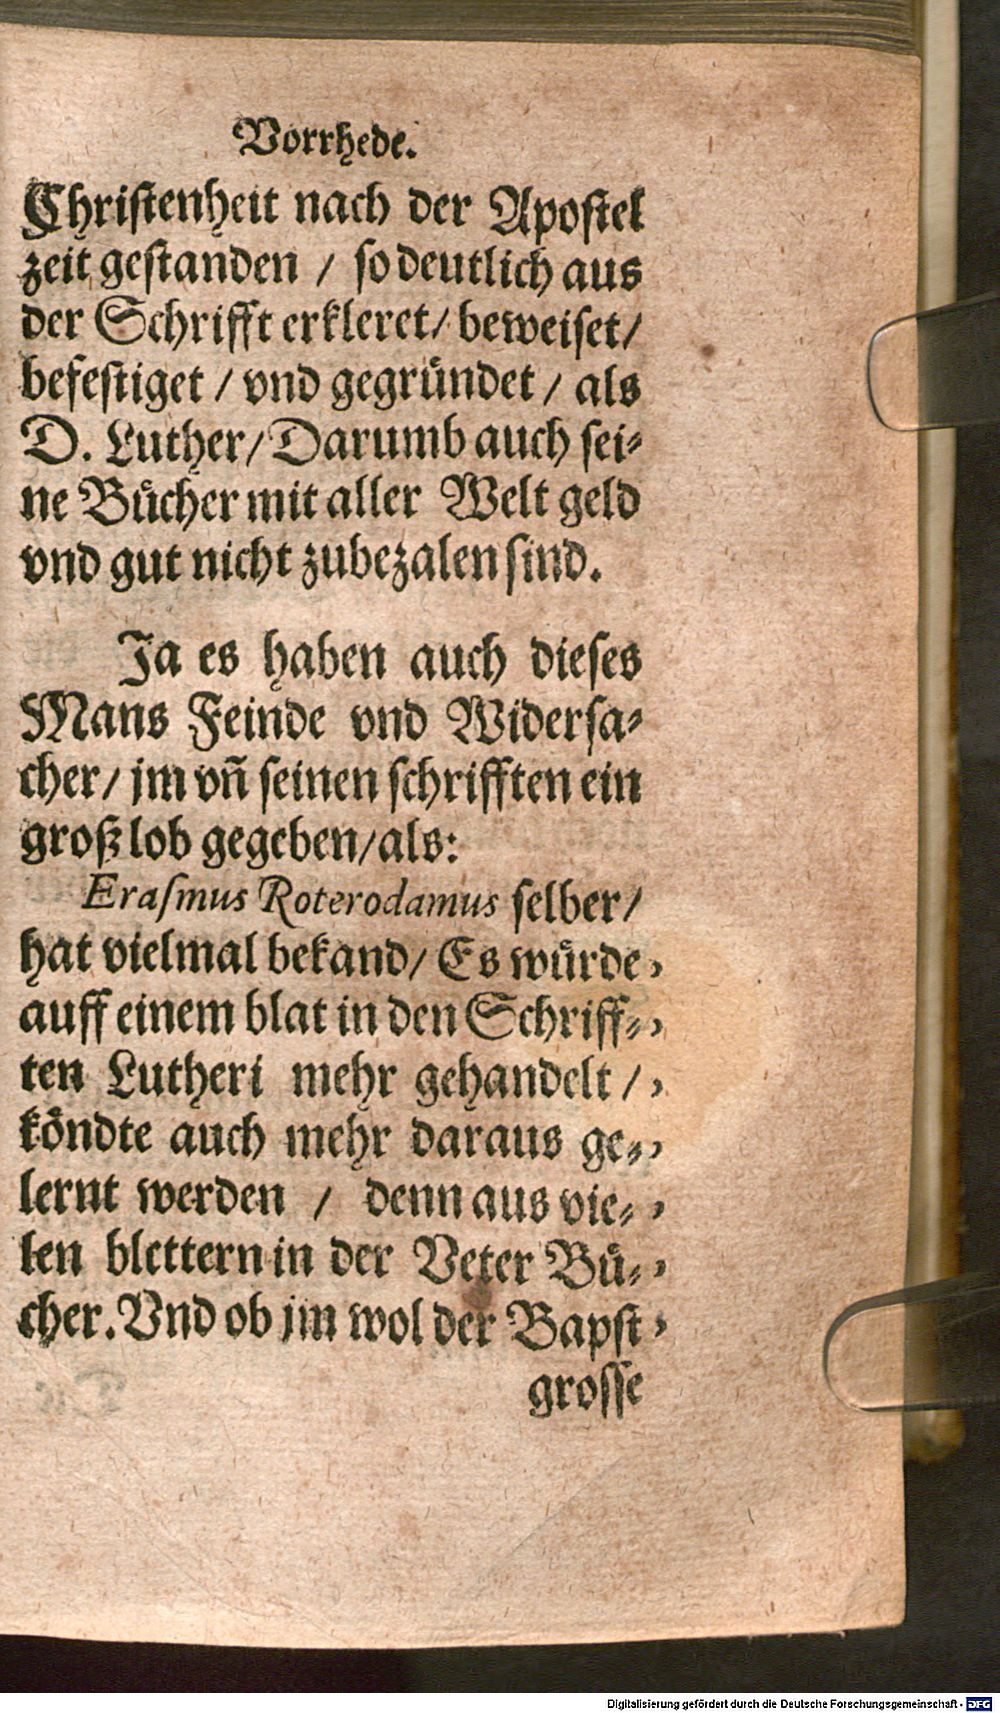 Vorrhede.
Chriſtenheit nach der Apoſtel
zeit geſtanden / ſo deutlich aus
der Schrifft erkleret/ beweiſet/
befeſtiget / vnd gegründet / als
D. Luther/ Darumb auch ſei⸗
ne Bücher mit aller Welt geld
vnd gut nicht zubezalen ſind.
Ja es haben auch dieſes
Mans Feinde vnd Widerſa⸗
cher/ jm vñ ſeinen ſchrifften ein
groß lob gegeben/als:
Eraſmus Roterodamus ſelber/
hat vielmal bekand/ Es würde ,
auff einem blat in den Schriff⸗ ,
ten Lutheri mehr gehandelt / ,
köndte auch mehr daraus ge⸗ ,
lernt werden / denn aus vie⸗ ,
len blettern in der Veter Bü⸗ ,
cher. Vnd ob jm wol der Bapſt ,
groſſe
Digitalisierung gefördert durch die Deutsche Forschungsgemeinschaft - DFG